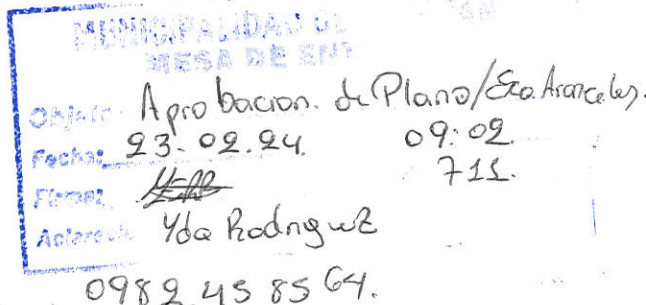 MUNICIPALIDAD DE
MESA DE ENT
Objeto: Aprobacion. de Plano/Exo. Aranceles.
Fecha: 23-02.24. 09:02.
711.
Firma:
Aclaración Yda Rodriguez
0982 45 85 64.